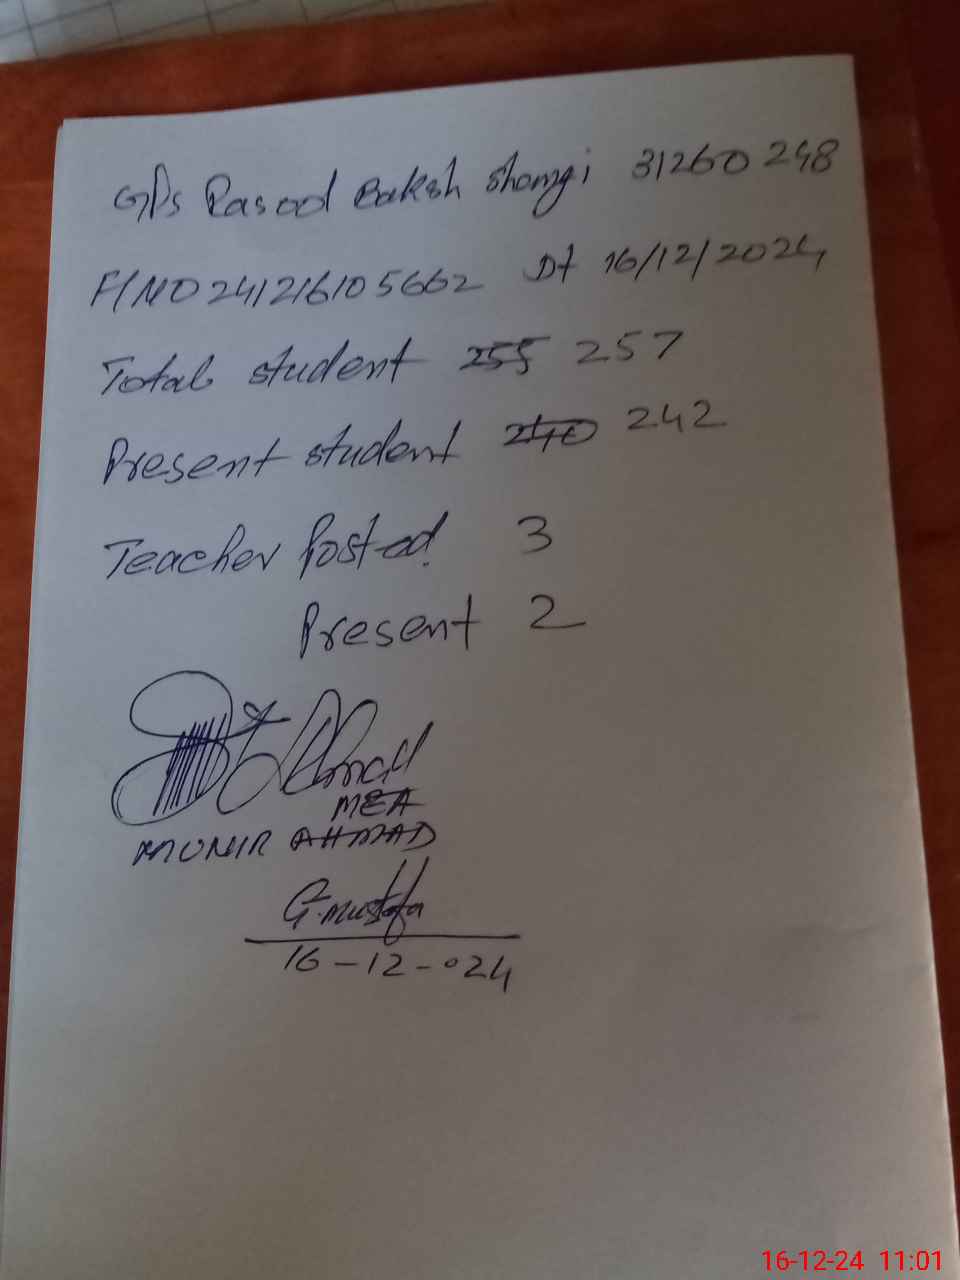 GPs Rasool Baksh Shangi 31260248
F/NO 241216105662 Dt 16/12/2024
Total student 255 257
Present student 240 242
Teacher Posted 3
Present 2
MEA
MUNIR AHMAD
G.mustafa
16-12-024
16-12-24 11:01